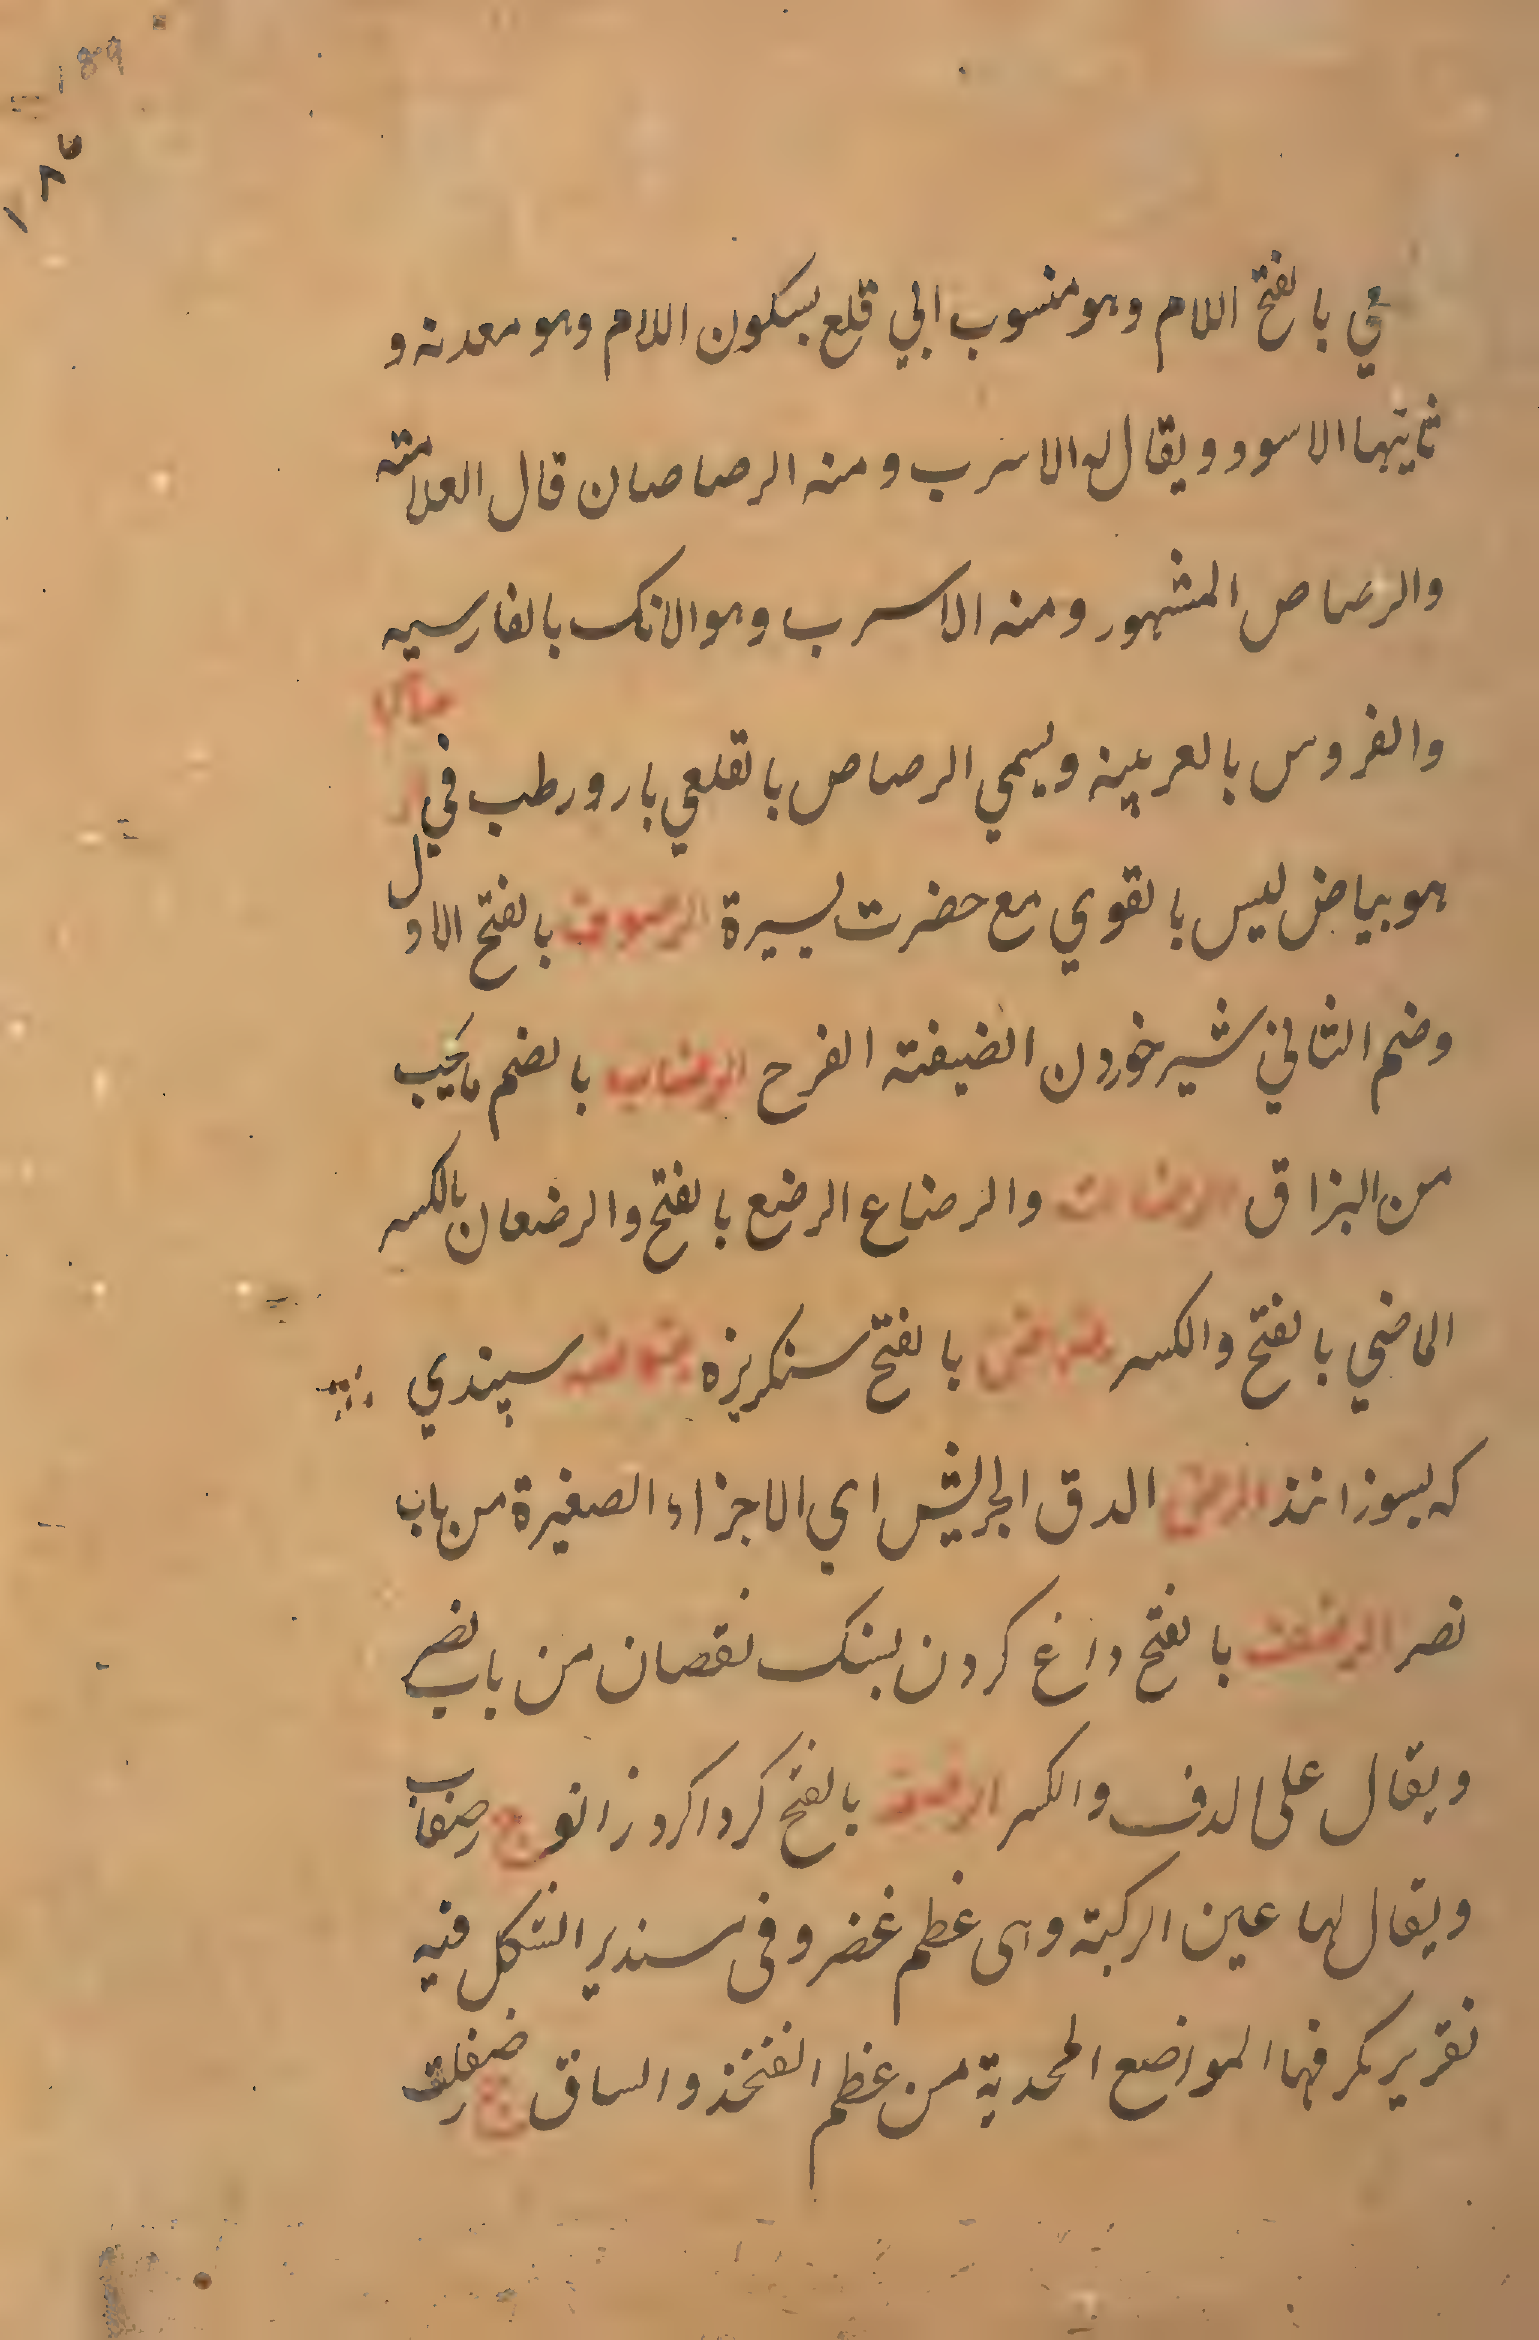 189
١٨٧
عي بالفتح اللام وهو منسوب الي قلع بسكون اللام وهو معدنه و
ثانيهما الاسود ويقال له الاسرب ومنه الرصاصان قال العلامته
والرصاص المشهور ومنه الاسرب وهو الانك بالفارسيه
والفروس بالعربيه ويسمي الرصاص بالقلعي بارد رطب في
هو بياض ليس بالقوي مع حضرت يسيرة الرصوف بالفتح الاول
وضم الثاني شير خوردن الضيفته الفرح الرضاب بالضم ما يجيب
من البزاق والرضاع الرضع بالفتح والرضعان بالكسر
الماضي بالفتح والكسر رضراض بالفتح سنكريزه سپندي
كه بسوزانند الرض الدق الجريش اي الاجزاء الصغيرة من باب
نصر الرضفت بالفتح داغ كردن بسنك نقصان من باب نصر
ويقال علي الدف والكسر الرضفه بالفتح كرداكرد زانو ج رضفات
ويقال لها عين الركبة وهى عظم غضروفى مستدير الشكل فيه
نقرير كر فيها المواضع المحدبة من عظم الفخذ والساق ج